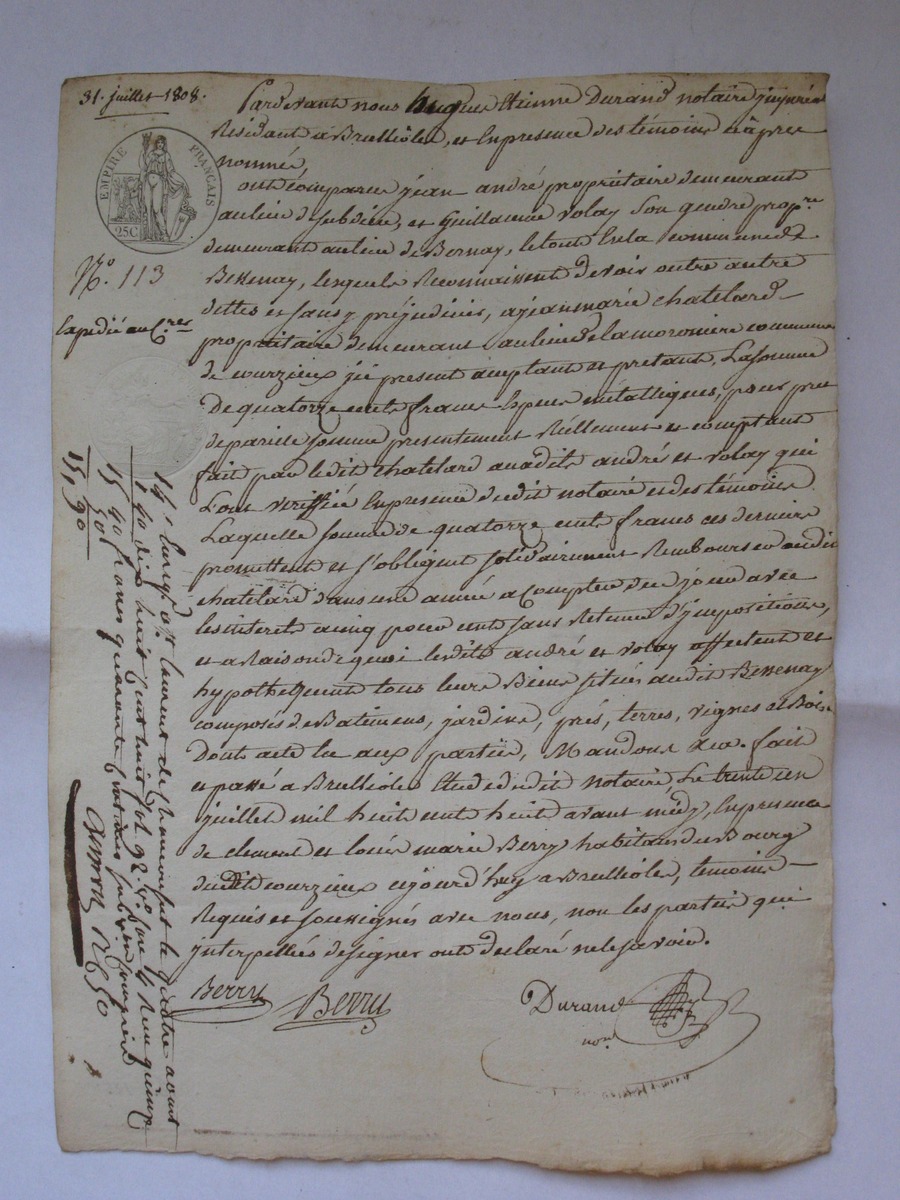 31. juillet 1808.
EMPIRE FRANÇAIS
25C
N.° 113
Expedié au C.res
Pardevant nous hugue Etienne Durand notaire jmperial
Residant a Brullioles, et En presence des témoins ci àpres
nommés
ont comparus jean andré propriétaire demeurant
au lieu de et Guillaume volay son gendre prop.re
demeurant au lieu de Bernay, le tout En la commune de
Bessenay, lesquels Reconnaissent devoir outre autre
dettes et sans y préjudicier, a jean marie chatelard
propriétaire demeurant au lieu de lamoroniere commune
de courzieux jci present aceptant et pretant, La somme
De quatorze cents francs Especes métalliques, pour pret
de pareille somme presentement Réellement et comptant
fait par ledit chatelard auxdits andré et volay qui
L'ont veriffiée En presence dudit notaire et des témoins
Laquelle somme de quatorze cents francs ces derniers
promettent et s'obligent solidairement Rembourser audit
chatelard dans une année a Compter de ce jour avec
les interets a cinq pour cent sans Retenue d'jmpositions,
et a Raison de quoi lesdits andré et volay affectent et
hypothequent tous leurs Biens situés audit Bessenay
composés de Batimens, jardins, prés, terres, vignes et Bois.
Dont acte lu aux parties, Mandons &ce. fait
et passé a Brullioles Etude dudit notaire, Le trente un
juillet mil huit cent huit avant midy, En presence
de clement et louis marie Berry habitans du Bourg
dudit courzieux cejourd'huy a Brullioles, temoins
Requis et soussignés avec nous, non les parties qui
jnterpellées de signer ont déclaré ne le savoir.
Berry
Berry
Durand
not.
14. Enreg. a st laurent de chamousset le quatre aout
1 40 dix huit cent huit fol. 92. v.° Case 4 Reçu quinze
15 40 francs quarante centimes
50
15, 90